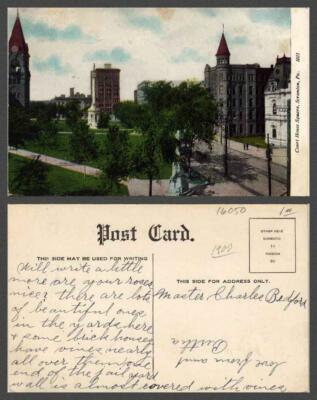 Court House Square, Scranton, Pa.
16050
1-
Post Card.
1909
THIS SIDE MAY BE USED FOR WRITING
THIS SIDE FOR ADDRESS ONLY.
Will write a little
more are your roses
nice? there are lots
of beautiful ones
in the yards here
& some brick houses
have vines nearly
all over them, one
end of the jail yard
wall is almost covered with vines
Master Charles Bedford
love from aunt
Bertha